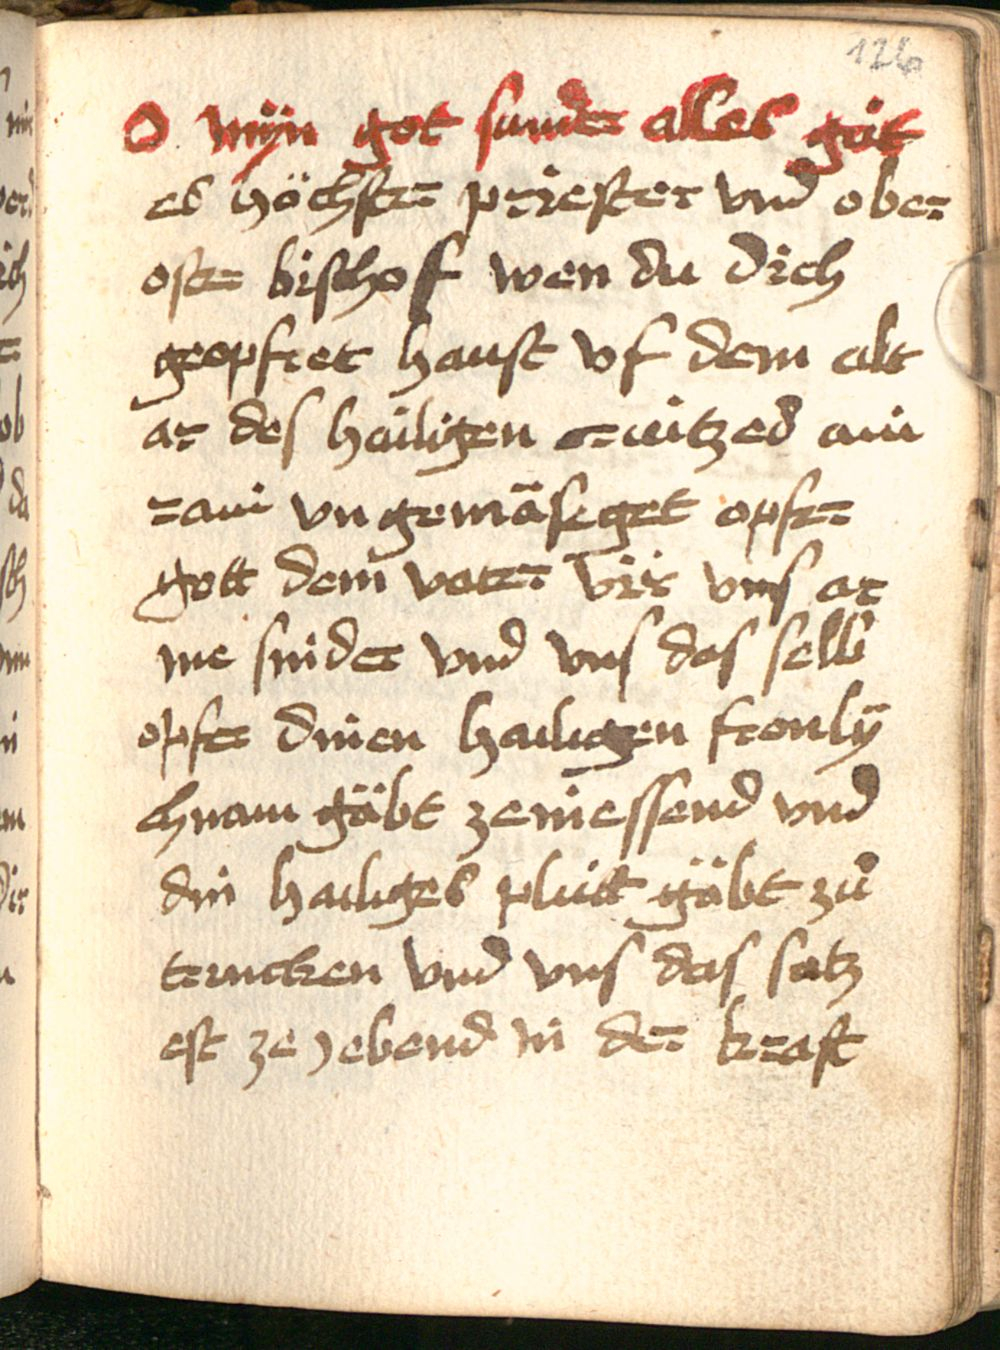 126
O mÿn got sunder alles güt
es höchster priester vnd ober
oster bischof wen du dich
geopfret haust vf dem alt
ar des hailigen crützes ain
rain vngemäsget opfer
gott dem vater vir vns ar
me sünder vnd vns das selb
opfer dinen hailigen fronlÿ
chnam gäbt ze niessend vnd
din hailiges plutt gäbt zu
trincken vnd vns das satz
est ze jebend in der kraft